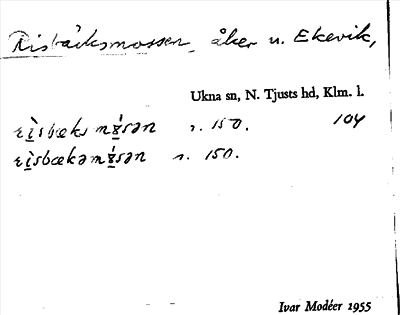 Risbäcksmossen, åker u. Ekevik,
Ukna sn, N. Tjusts hd, Klm. l.
rìsbæks mɷ́sən r. 150. 104
rìsbækəmɷ́sən r. 150.
Ivar Modéer 1955